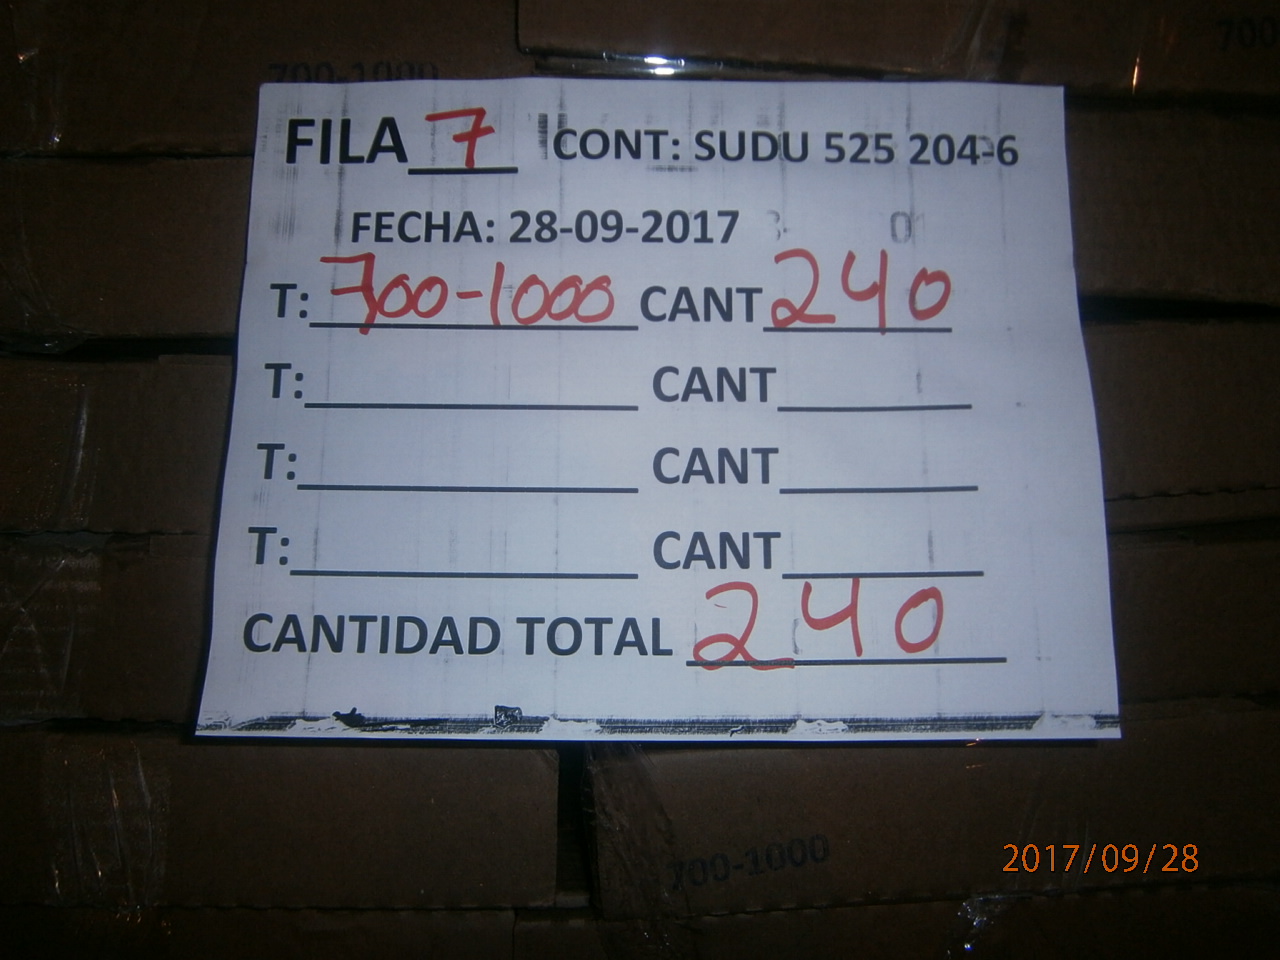 700-1000
700
FILA 7 CONT: SUDU 525 204-6
FECHA: 28-09-2017
T: 700-1000 CANT 240
T: CANT
T: CANT
T: CANT
CANTIDAD TOTAL 240
700-1000
2017/09/28